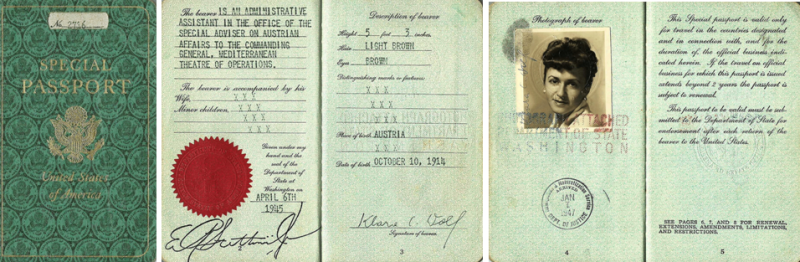 No. 2956
SPECIAL
PASSPORT
United States
of America
The bearer IS AN ADMINISTRATIVE
ASSISTANT IN THE OFFICE OF THE
SPECIAL ADVISER ON AUSTRIAN
AFFAIRS TO THE COMMANDING
GENERAL, MEDITERRANEAN
THEATRE OF OPERATIONS.
The bearer is accompanied by his
Wife, XXX
Minor children, XXX
XXX
XXX
Given under my
hand and the
seal of the
Department of
State at
Washington on
APRIL 6TH
1945
Description of bearer
Height 5 feet 3 inches.
Hair LIGHT BROWN
Eyes BROWN
Distinguishing marks or features:
XXX
XXX
XXX
Place of birth AUSTRIA
XXX
Date of birth OCTOBER 10, 1914
Klara C. Wolf
Signature of bearer.
3
Photograph of bearer
PHOTOGRAPH ATTACHED
DEPARTMENT OF STATE
WASHINGTON
JAN
1947
DEPT. OF JUSTICE
4
This Special passport is valid only
for travel in the countries designated
and in connection with, and for the
duration of, the official business indi-
cated herein. If the travel on official
business for which this passport is issued
extends beyond 2 years the passport is
subject to renewal.
This passport to be valid must be sub-
mitted to the Department of State for
endorsement after each return of the
bearer to the United States.
SEE PAGES 6, 7, AND 8 FOR RENEWAL,
EXTENSIONS, AMENDMENTS, LIMITATIONS,
AND RESTRICTIONS.
5